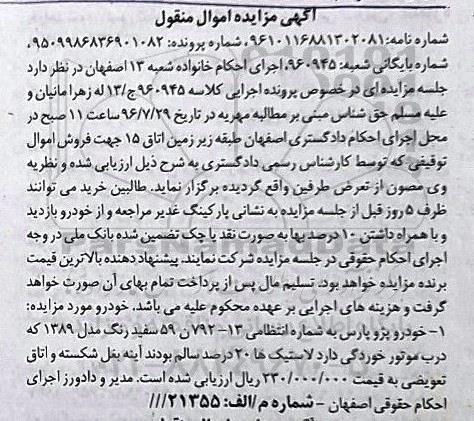 آگهی مزایده اموال منقول
شماره نامه:۹۶۱۰۱۱۶۸۸۱۳۰۲۰۸۱، شماره پرونده: ۹۵۰۹۹۸۶۸۳۶۹۰۱۰۸۲،
شماره بایگانی شعبه: ۹۶۰۹۴۵، اجرای احکام خانواده شعبه ۱۳ اصفهان در نظر دارد
جلسه مزایده ای در خصوص پرونده اجرایی کلاسه ۹۶۰۹۴۵ج/۱۳ له زهرا مانیان و
علیه مسلم حق شناس مبنی بر مطالبه مهریه در تاریخ ۹۶/۷/۲۹ ساعت ۱۱ صبح در
محل اجرای احکام دادگستری اصفهان طبقه زیر زمین اتاق ۱۵ جهت فروش اموال
توقیفی که توسط کارشناس رسمی دادگستری به شرح ذیل ارزیابی شده و نظریه
وی مصون از تعرض طرفین واقع گردیده برگزار نماید. طالبین خرید می توانند
ظرف ۵ روز قبل از جلسه مزایده به نشانی پارکینگ غدیر مراجعه و از خودرو بازدید
و با همراه داشتن ۱۰ درصد بها به صورت نقد یا چک تضمین شده بانک ملی در وجه
اجرای احکام حقوقی در جلسه مزایده شرکت نمایند. پیشنهاد دهنده بالاترین قیمت
برنده مزایده خواهد بود. تسلیم مال پس از پرداخت تمام بهای آن صورت خواهد
گرفت و هزینه های اجرایی بر عهده محکوم علیه می باشد. خودرو مورد مزایده:
۱- خودرو پژو پارس به شماره انتظامی ۱۳- ۷۹۲ن ۵۹ سفید رنگ مدل ۱۳۸۹ که
درب موتور خوردگی دارد لاستیک ها ۲۰ درصد سالم بودند آینه بغل شکسته و اتاق
تعویضی به قیمت ۲۳۰/۰۰۰/۰۰۰ ریال ارزیابی شده است. مدیر و دادورز اجرای
احکام حقوقی اصفهان - شماره م/الف: ۲۱۳۵۵///